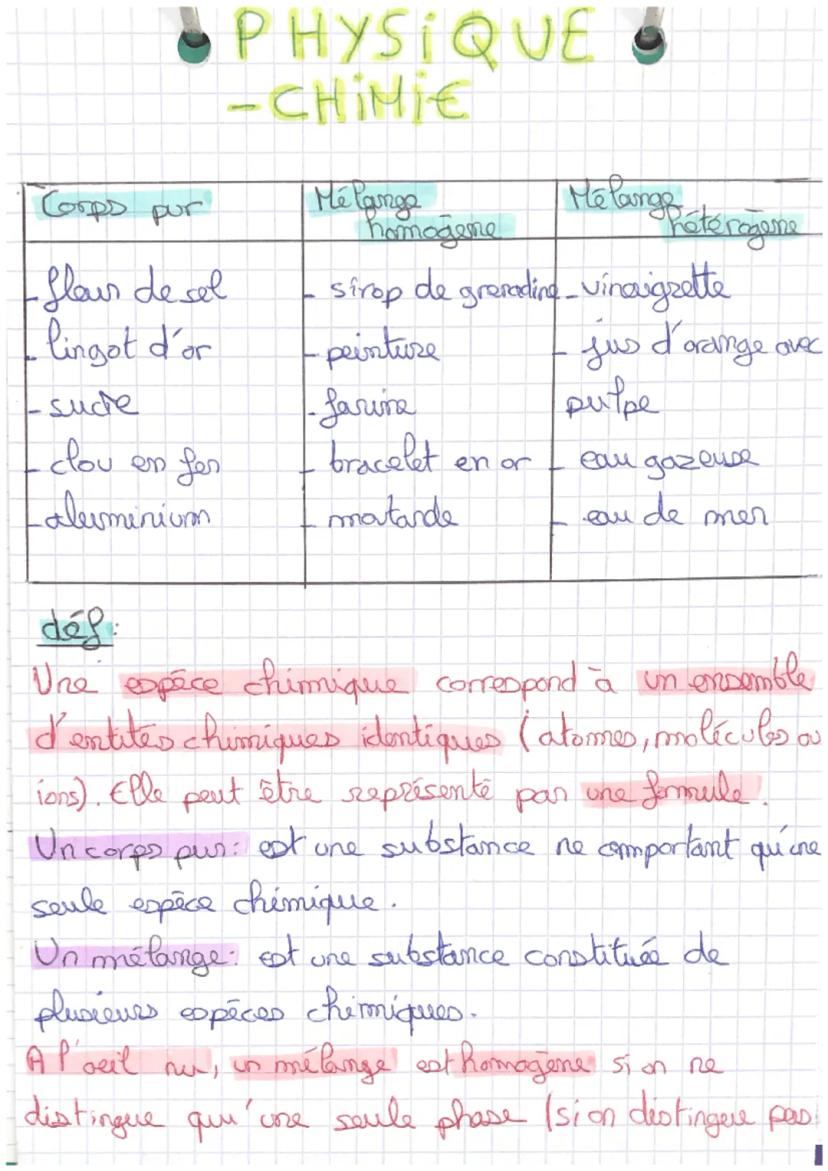 PHYSIQUE
-CHIMIE
Corps pur
Mélange
homogène
Mélange
hétérogène
- fleur de sel
- lingot d'or
- sucre
- clou en fer
- aluminium
- sirop de grenadine
- peinture
- farine
- bracelet en or
- moutarde
- vinaigrette
- jus d'orange avec
pulpe
- eau gazeuse
- eau de mer
déf:
Une espèce chimique correspond à un ensemble
d'entités chimiques identiques (atomes, molécules ou
ions). Elle peut être représenté par une formule.
Un corps pur: est une substance ne comportant qu'une
seule espèce chimique.
Un mélange: est une substance constituée de
plusieurs espèces chimiques.
A l'oeil nu, un mélange est homogène si on ne
distingue qu'une seule phase (si on distingue pas